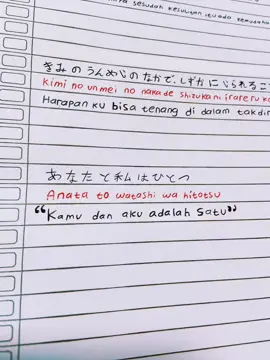 sesudah kesulitan itu ada kemudaha
きみのうんめいのなかで、しずかにいられるこ
Kimi no unmei no nakade shizuka ni irareru ko
Harapan ku bisa tenang di dalam takdir
あなたと私はひとつ
Anata to watashi wa hitotsu
"Kamu dan aku adalah Satu"